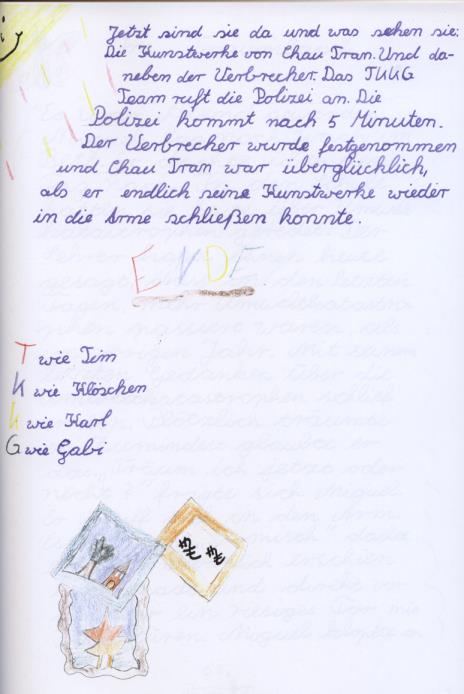 Jetzt sind sie da und was sehen sie:
Die Kunstwerke von Chau Tran. Und da-
neben der Verbrecher. Das TKKG
Team ruft die Polizei an. Die
Polizei kommt nach 5 Minuten.
Der Verbrecher wurde festgenommen
und Chau Tran war überglücklich,
als er endlich seine Kunstwerke wieder
in die Arme schließen konnte.
ENDE
T wie Tim
K wie Klöschen
K wie Karl
G wie Gabi